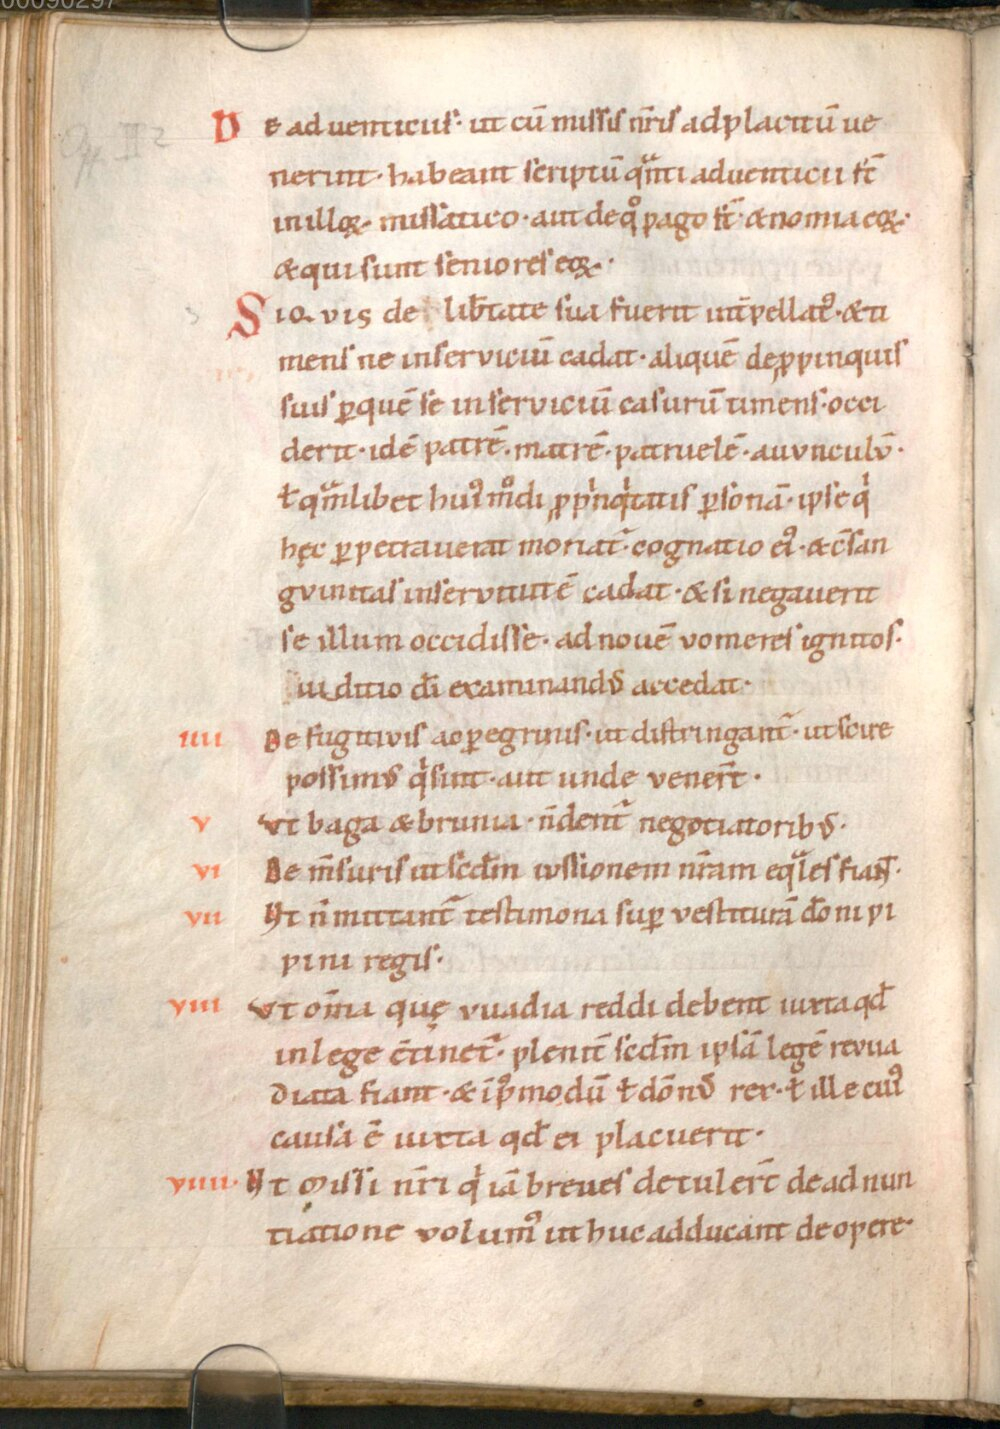 De aduenticiis· ut cū missis nr̄is ad placitū ue
nerint· habeant scriptū qͣnti aduenticii st̄
in illoꝝ· missatico· aut de qͦ pago st̄· & nomia eoꝝ·
& qui sunt seniores eoꝝ·
SIQVIS de lib̄tate sua fuerit int̄pellatꝰ· & ti
mens ne in serviciū cadat· aliquē de ꝓpinquis
suis ꝑ quē se in serviciū casurū timens· occi
derit· idē patrē· matrē· patruelē· avvnculv̄·
ł qͣmlibet huiꝰmͦdi ꝓpīnqͥtatis ꝑsonā· ipse qͥ
hęc ꝑpetraverat moriat᷑· cognatio eiꝰ· & c̄san
gvinitas in servitutē cadat· & si negauerit
se illum occidisse· ad nouē vomeres ignitos·
iuditio dī examinandꝰ accedat·
IIII De fugitivis ac ꝑegrinis· ut distringant᷑· ut scire
possimꝰ qͥ sint· aut unde vener̄t·
V Vt baga & brunia· n̄ dent᷑ negotiatoribꝰ·
VI De m̄suris ut scd̄m iussionem nr̄am eqͣles fiant·
VII Vt n̄ mittant᷑ testimonia suꝑ vestiturā dōni pi
pini regis·
VIII Vt om̄ia quę vvadia reddi debent iuxta qd̄
in lege c̄tinet᷑· plenit᷑ scd̄m ipsā legē revva
diata fiant· & ī pꝰmodū ł dōnꝰ rex· ł ille cuiꝰ
causa ē iuxta qd̄ ei placuerit·
VIIII· Vt missi nr̄i qͥ iā breves detuler̄t de adnun
tiatione volumꝰ ut huc adducant de opere·